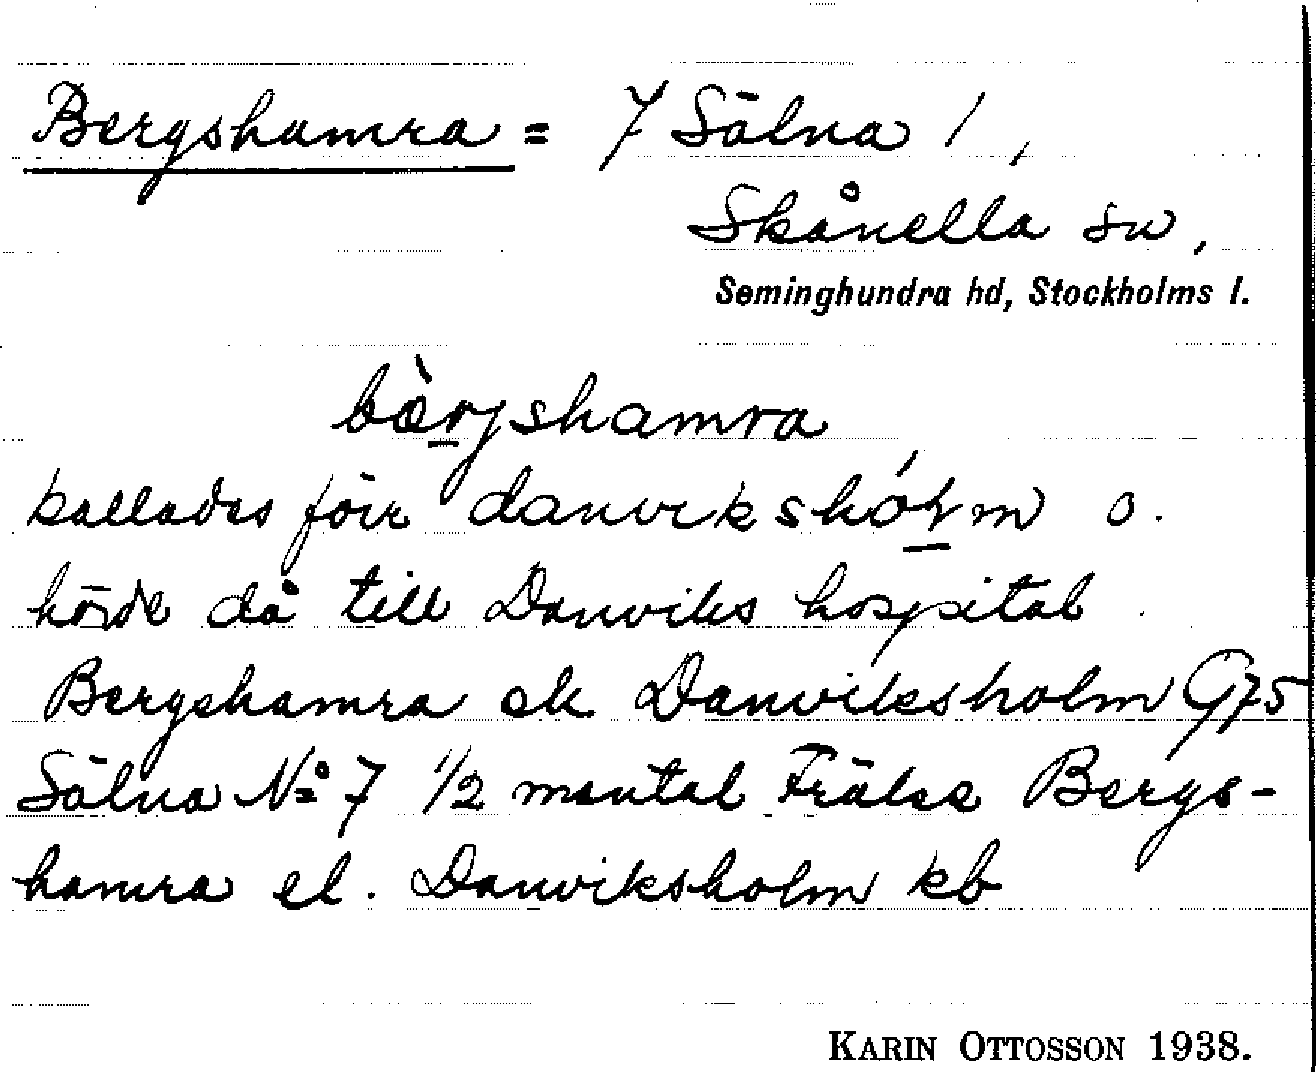 Bergshamra = 7 Sälna 1,
Skånella sn,
Seminghundra hd, Stockholms l.
bæ̀rjshamra
kallades förr danvikshólm o.
hörde då till Danviks hospital.
Bergshamra ek Danviksholm G75
Sälna No 7 1/2 mantal Frälse Bergs-
hamra el. Danviksholm kb
KARIN OTTOSSON 1938.